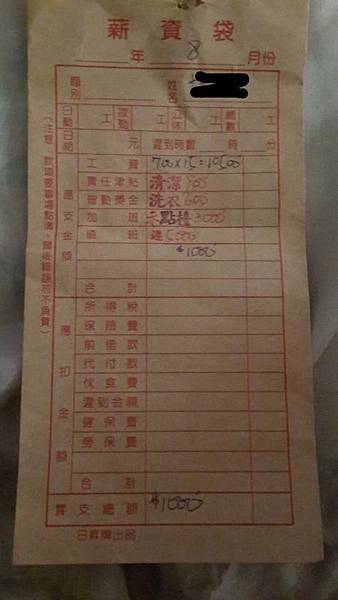 薪資袋
年 8 月份
職別 姓名
日勤 工 夜勤 工 公休 工 總數 工
日給 元 遲到時數 時 分
應支金額
工資 700×15=10500
責任津貼 清潔 900
全勤獎金 洗衣 600
加班 未點檯 3000
值班 5000
$1000
合計
應扣金額
所得稅
保賠費
前借款
代付款
伙食費
遲到金額
健保費
勞保費
合計
實支總額 $1000
(注意:款項要當場點清,離後錯誤恕不負責)
日昇牌出品